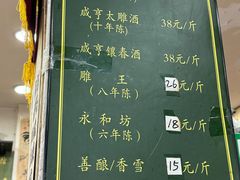 咸亨太雕酒 38元/斤
(十年陈)
咸亨镶春酒 38元/斤
雕 王 26元/斤
(八年陈)
永和坊 18元/斤
(六年陈)
善酿/香雪 15元/斤